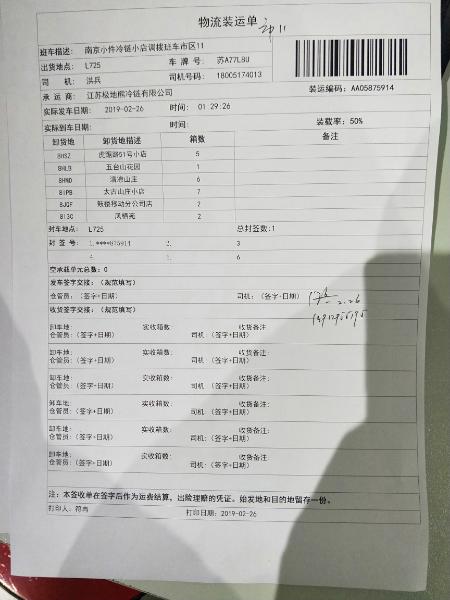 物流装运单
班车描述: 南京小件冷链小店调拨班车市区11
出货地点: L725 车牌号: 苏A77L8U
司 机: 洪兵 司机号码: 18005174013
承运商: 江苏极地熊冷链有限公司 装运编码: AA05875914
实际发车日期: 2019-02-26 时间: 01:29:26
实际到车日期: 时间: 装载率: 50%
卸货地 卸货地描述 箱数 备注
8HSZ 虎踞路51号小店 5
8HLB 五台山花园 1
8HND 清流山庄 6
8IPB 太古山庄小店 7
8JGF 鼓楼移动分公司店 2
8I3C 凤栖苑 2
封车地点: L725 总封签数:1
封签号: 1.****875914 2. 3
4. 6
空承载单元总数: 0
发车签字交接: (规范填写)
仓管员: (签字+日期) 司机: (签字+日期) 2.26
收货签字交接: (规范填写)
卸车地: 实收箱数: 收货备注:
仓管员: (签字+日期) 司机: (签字+日期)
卸车地: 实收箱数: 收货备注:
仓管员: (签字+日期) 司机: (签字+日期)
卸车地: 实收箱数: 收货备注:
仓管员: (签字+日期) 司机: (签字+日期)
卸车地: 实收箱数: 收货备注:
仓管员: (签字+日期) 司机: (签字+日期)
卸车地: 实收箱数: 收货备注:
仓管员: (签字+日期) 司机: (签字+日期)
卸车地: 实收箱数: 收货备注:
仓管员: (签字+日期) 司机: (签字+日期)
注: 本签收单在签字后作为运费结算, 出险理赔的凭证。始发地和目的地留存一份。
打印人: 符冉 打印日期: 2019-02-26